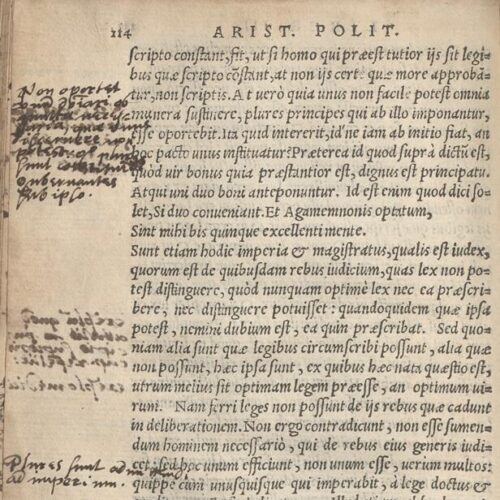 214 ARIST. POLIT.
scripto constant, fit, ut si homo qui præest tutior ijs sit legi-
bus quæ scripto cōstant, at non ijs certè quæ more approbā-
tur, non scriptis. At uerò quia unus non facile potest omnia
munera sustinere, plures principes qui ab illo imponantur,
esse oportebit. Ita quid intererit, id'ne iam ab initio fiat, an
hoc pacto unus instituatur? Præterea id quod suprà dictũ est,
quòd uir bonus quia præstantior est, dignus est principatu.
Atqui uni duo boni anteponuntur. Id est enim quod dici so-
let, Si duo conueniant. Et Agamemnonis optatum,
Sint mihi bis quinque excellenti mente.
Sunt etiam hodie imperia & magistratus, qualis est iudex,
quorum est de quibusdam rebus iudicium, quas lex non po-
test distinguere, quòd nunquam optimè lex nec ea præscri-
bere, nec distinguere potuisset: quandoquidem quæ ipsa
potest, nemini dubium est, ea quin præscribat. Sed quo-
niam alia sunt quæ legibus circumscribi possunt, alia quæ
non possunt, hæc ipsa sunt, ex quibus hæc nata quæstio est,
utrum melius sit optimam legem præesse, an optimum ui-
rum. Nam ferri leges non possunt de ijs rebus quæ cadunt
in deliberationem. Non ergo contradicunt, non esse sumen-
dum hominem necessariò, qui de rebus eius generis iudi-
cet, sed hoc unum efficiunt, non unum esse, uerum multos:
quippe cùm unusquisque qui imperabit, à lege doctus &
Non oportet
sub ipso.
Plures sunt ad